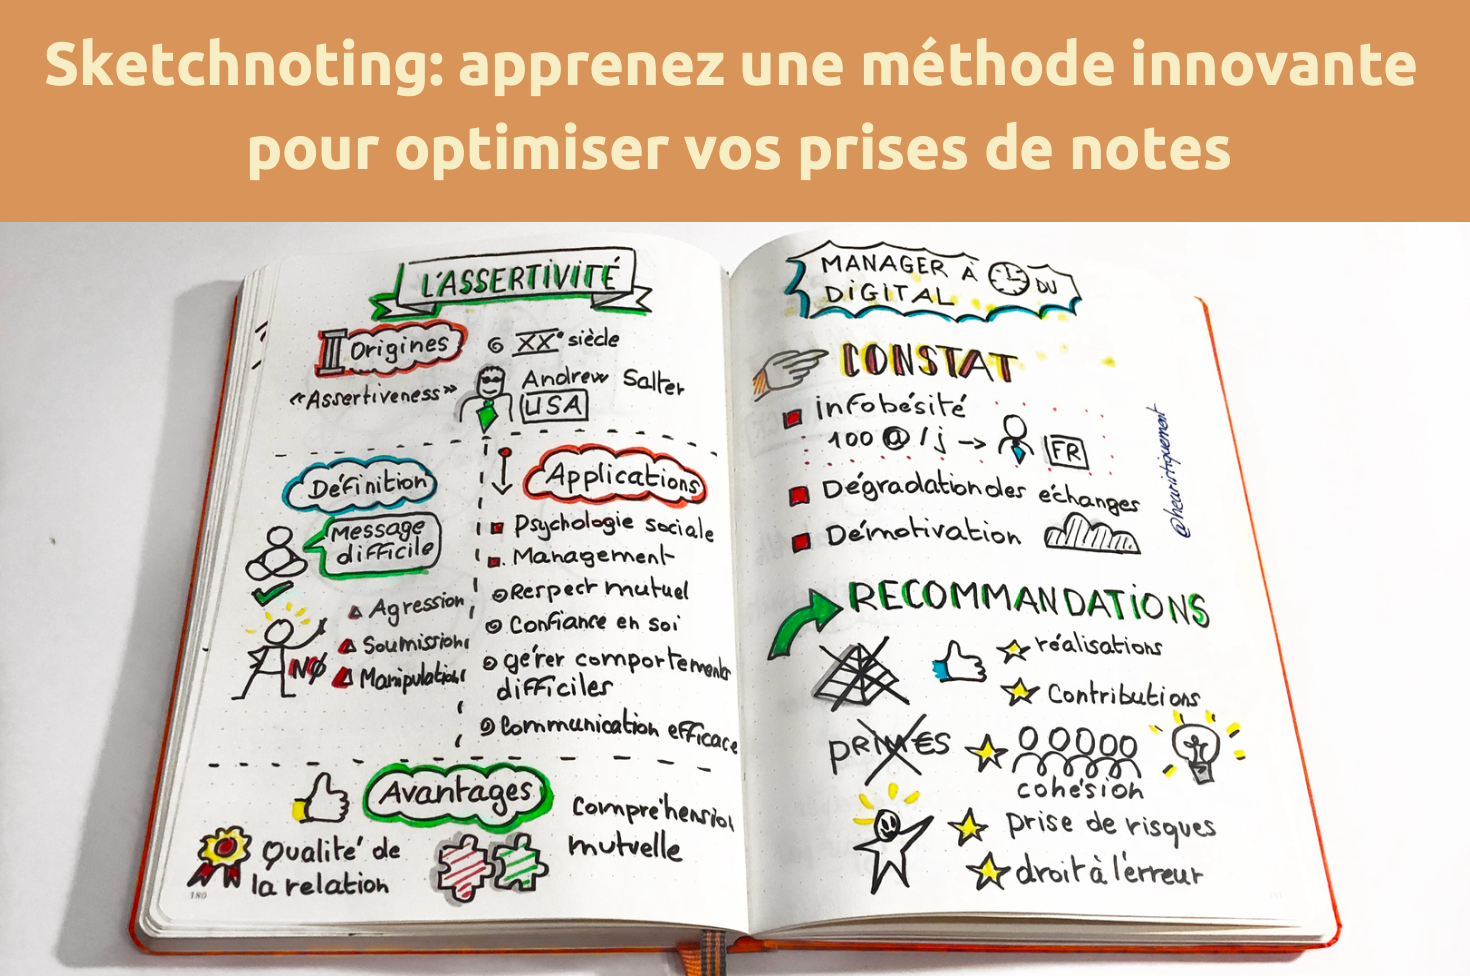 Sketchnoting: apprenez une méthode innovante
pour optimiser vos prises de notes
L'ASSERTIVITÉ
Origines
XXe siècle
"Assertiveness"
Andrew Salter
USA
Définition
Message
difficile
Agression
Soumission
NO
Manipulation
Applications
Psychologie sociale
Management
Respect mutuel
Confiance en soi
gérer comportements
difficiles
Communication efficace
Avantages
Compréhension
mutuelle
Qualité de
la relation
180
MANAGER À DU
DIGITAL
CONSTAT
infobésité
100 @ / j → FR
Dégradation des échanges
Démotivation
@heuristiquement
RECOMMANDATIONS
réalisations
Contributions
PRIMES
cohésion
prise de risques
droit à l'erreur